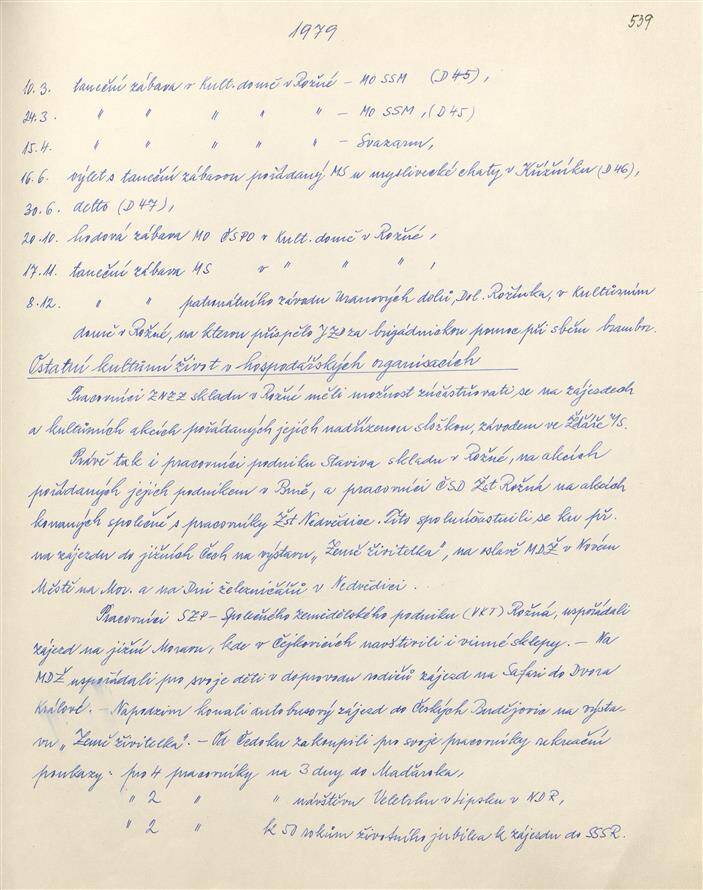 539
1979
10.3. taneční zábava v Kult. domě v Rožné – MO SSM (D45),
24.3. " " " " " – MO SSM, (D45)
15.4. " " " " " – Svazarm,
16.6. výlet s taneční zábavou pořádaný MS u myslivecké chaty v Křížníku (D46),
30.6. detto (D47),
20.10. hodová zábava MO ČSPO v Kult. domě v Rožné,
17.11. taneční zábava MS v " " " ,
8.12. " " patronátního závodu Uranových dolů, Dol. Rožínka, v Kultůrním
domě v Rožné, na kterou přispělo JZD za brigádnickou pomoc při sběru brambor.
Ostatní kultůrní život v hospodářských organisacích
Pracovníci ZNZZ skladu v Rožné měli možnost zúčastňovati se na zájezdech
a kultůrních akcích pořádaných jejich nadřízenou složkou, závodem ve Žďáře n/S.
Právě tak i pracovníci podniku Staviva skladu v Rožné, na akcích
pořádaných jejich podnikem v Brně, a pracovníci ČSD Žst Rožná na akcích
konaných společně s pracovníky Žst Nedvědice. Tito spoluúčastnili se ku př.
na zájezdu do jižních Čech na výstavu „Země živitelka", na oslavě MDŽ v Novém
Městě na Mor. a na Dni železničářů v Nedvědici.
Pracovníci SZP – Společného zemědělského podniku (VKT) Rožná, uspořádali
zájezd na jižní Moravu, kde v Čejkovicích navštívili i vinné sklepy. – Na
MDŽ uspořádali pro svoje děti v doprovodu rodičů zájezd na Safari do Dvora
Králové. – Napodzim konali autobusový zájezd do Českých Budějovic na výsta-
vu „Země živitelka". – Od Čedoku zakoupili pro svoje pracovníky rekreační
poukazy - pro 4 pracovníky na 3 dny do Maďarska,
" 2 " " návštěvu Veletrhu v Lipsku v NDR,
" 2 " k 50 rokům životního jubilea k zájezdu do SSSR.